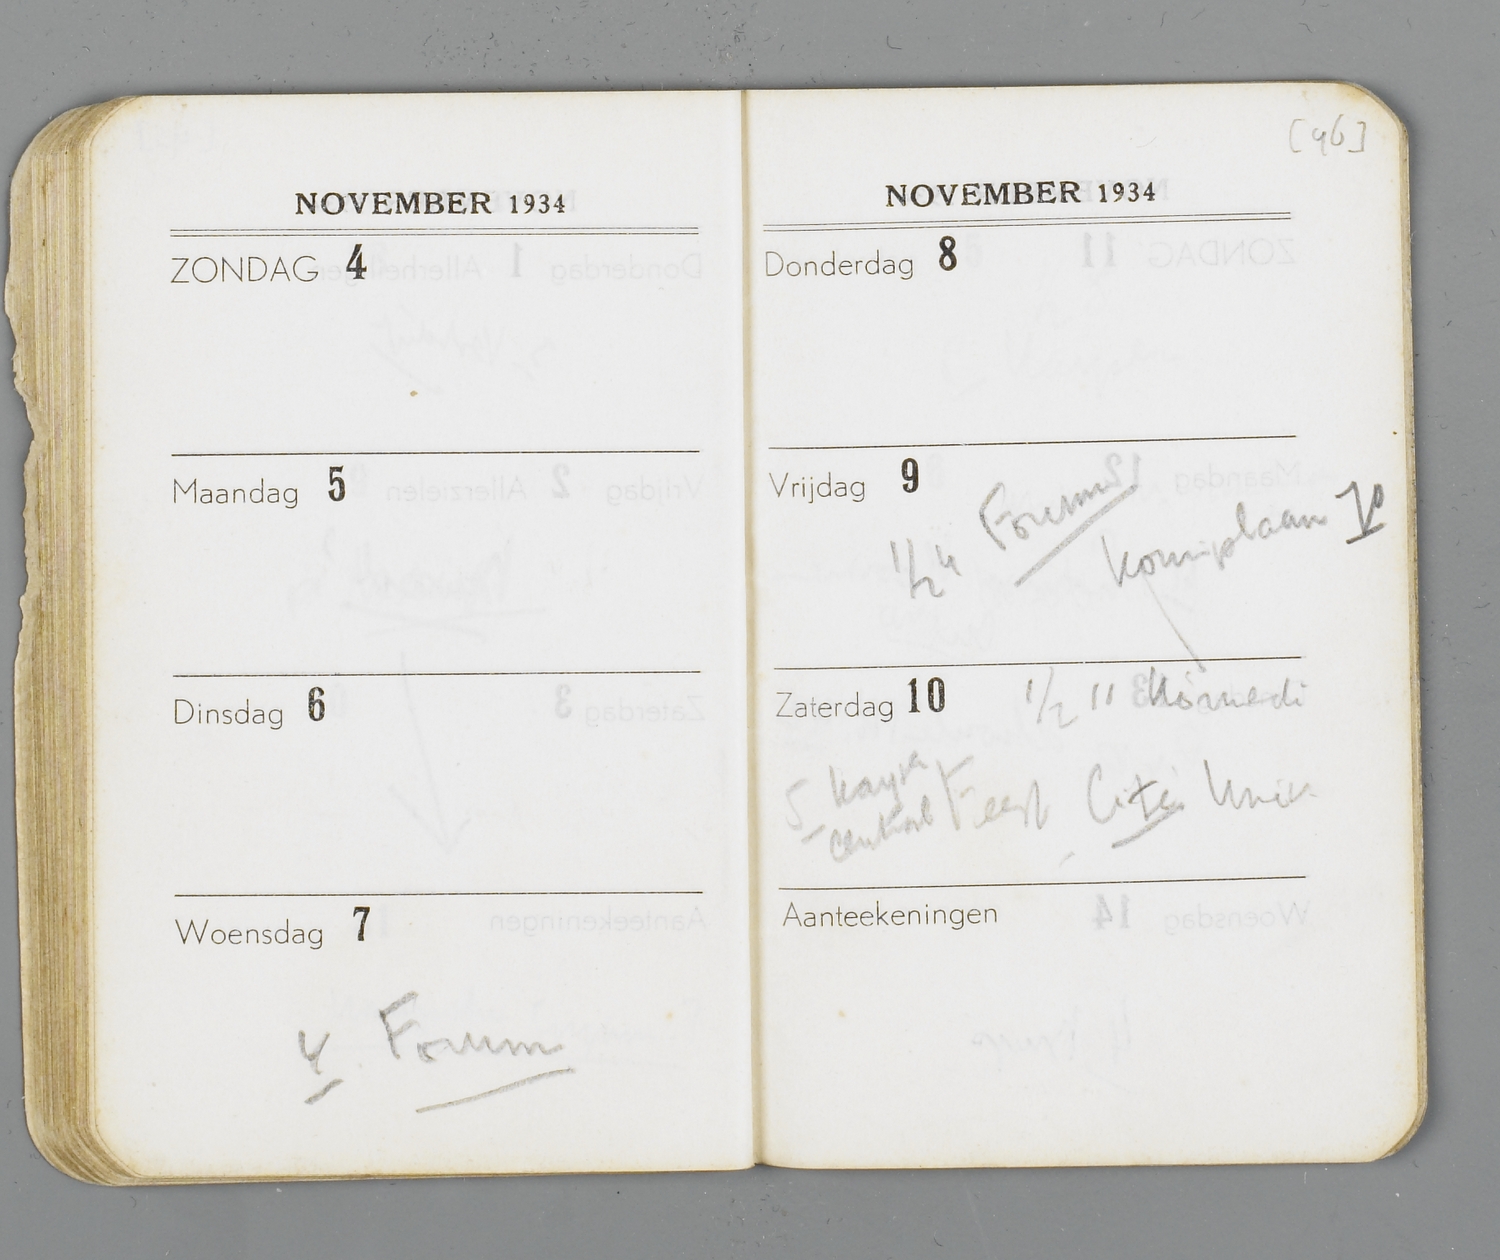 NOVEMBER 1934
ZONDAG 4
Maandag 5
Dinsdag 6
Woensdag 7
4 Forum
[96]
NOVEMBER 1934
Donderdag 8
Vrijdag 9
Forum
1/2 4
70
Zaterdag 10
1/2 11
5
central Feest Cité
Aanteekeningen